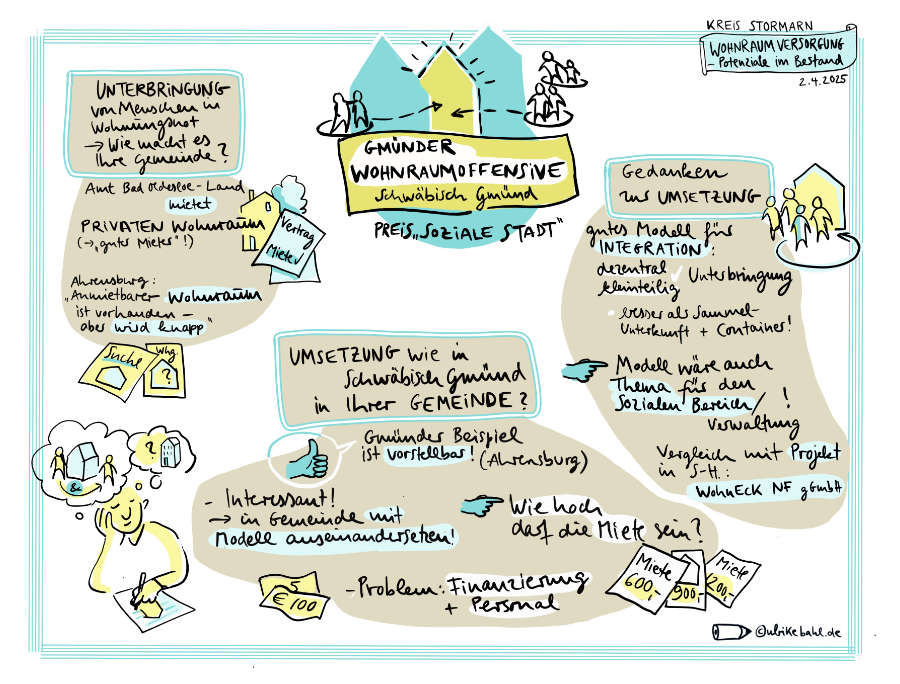 KREIS STORMARN
WOHNRAUMVERSORGUNG
– Potenziale im Bestand
2.4.2025
GMÜNDER
WOHNRAUMOFFENSIVE
Schwäbisch Gmünd
PREIS „SOZIALE STADT"
UNTERBRINGUNG
von Menschen in
Wohnungsnot
→ Wie macht es
Ihre Gemeinde?
Amt Bad Oldesloe-Land
mietet
PRIVATEN Wohnraum
(→ „gutes Mieten"!)
Vertrag
Miete
Ahrensburg:
„Anmietbarer Wohnraum
ist vorhanden –
aber wird knapp"
Suche
Whg.
?
Gedanken
zur UMSETZUNG
gutes Modell für
INTEGRATION:
dezentral
kleinteilig / Unterbringung
besser als Sammel-
Unterkunft + Container!
Modell wäre auch
Thema für den
Sozialen Bereich/ !
Verwaltung
Vergleich mit Projekt
in S-H.:
WohnEcK NF gGmbH
UMSETZUNG wie in
Schwäbisch Gmünd
in Ihrer GEMEINDE?
Gmünder Beispiel
ist vorstellbar! (Ahrensburg)
- Interessant!
→ in Gemeinde mit
Modell auseinandersetzen!
Wie hoch
darf die Miete sein?
- Problem: Finanzierung
+ Personal
5
€ 100
Miete
600,-
900,-
Miete
1200,-
?
©ulrikebahl.de